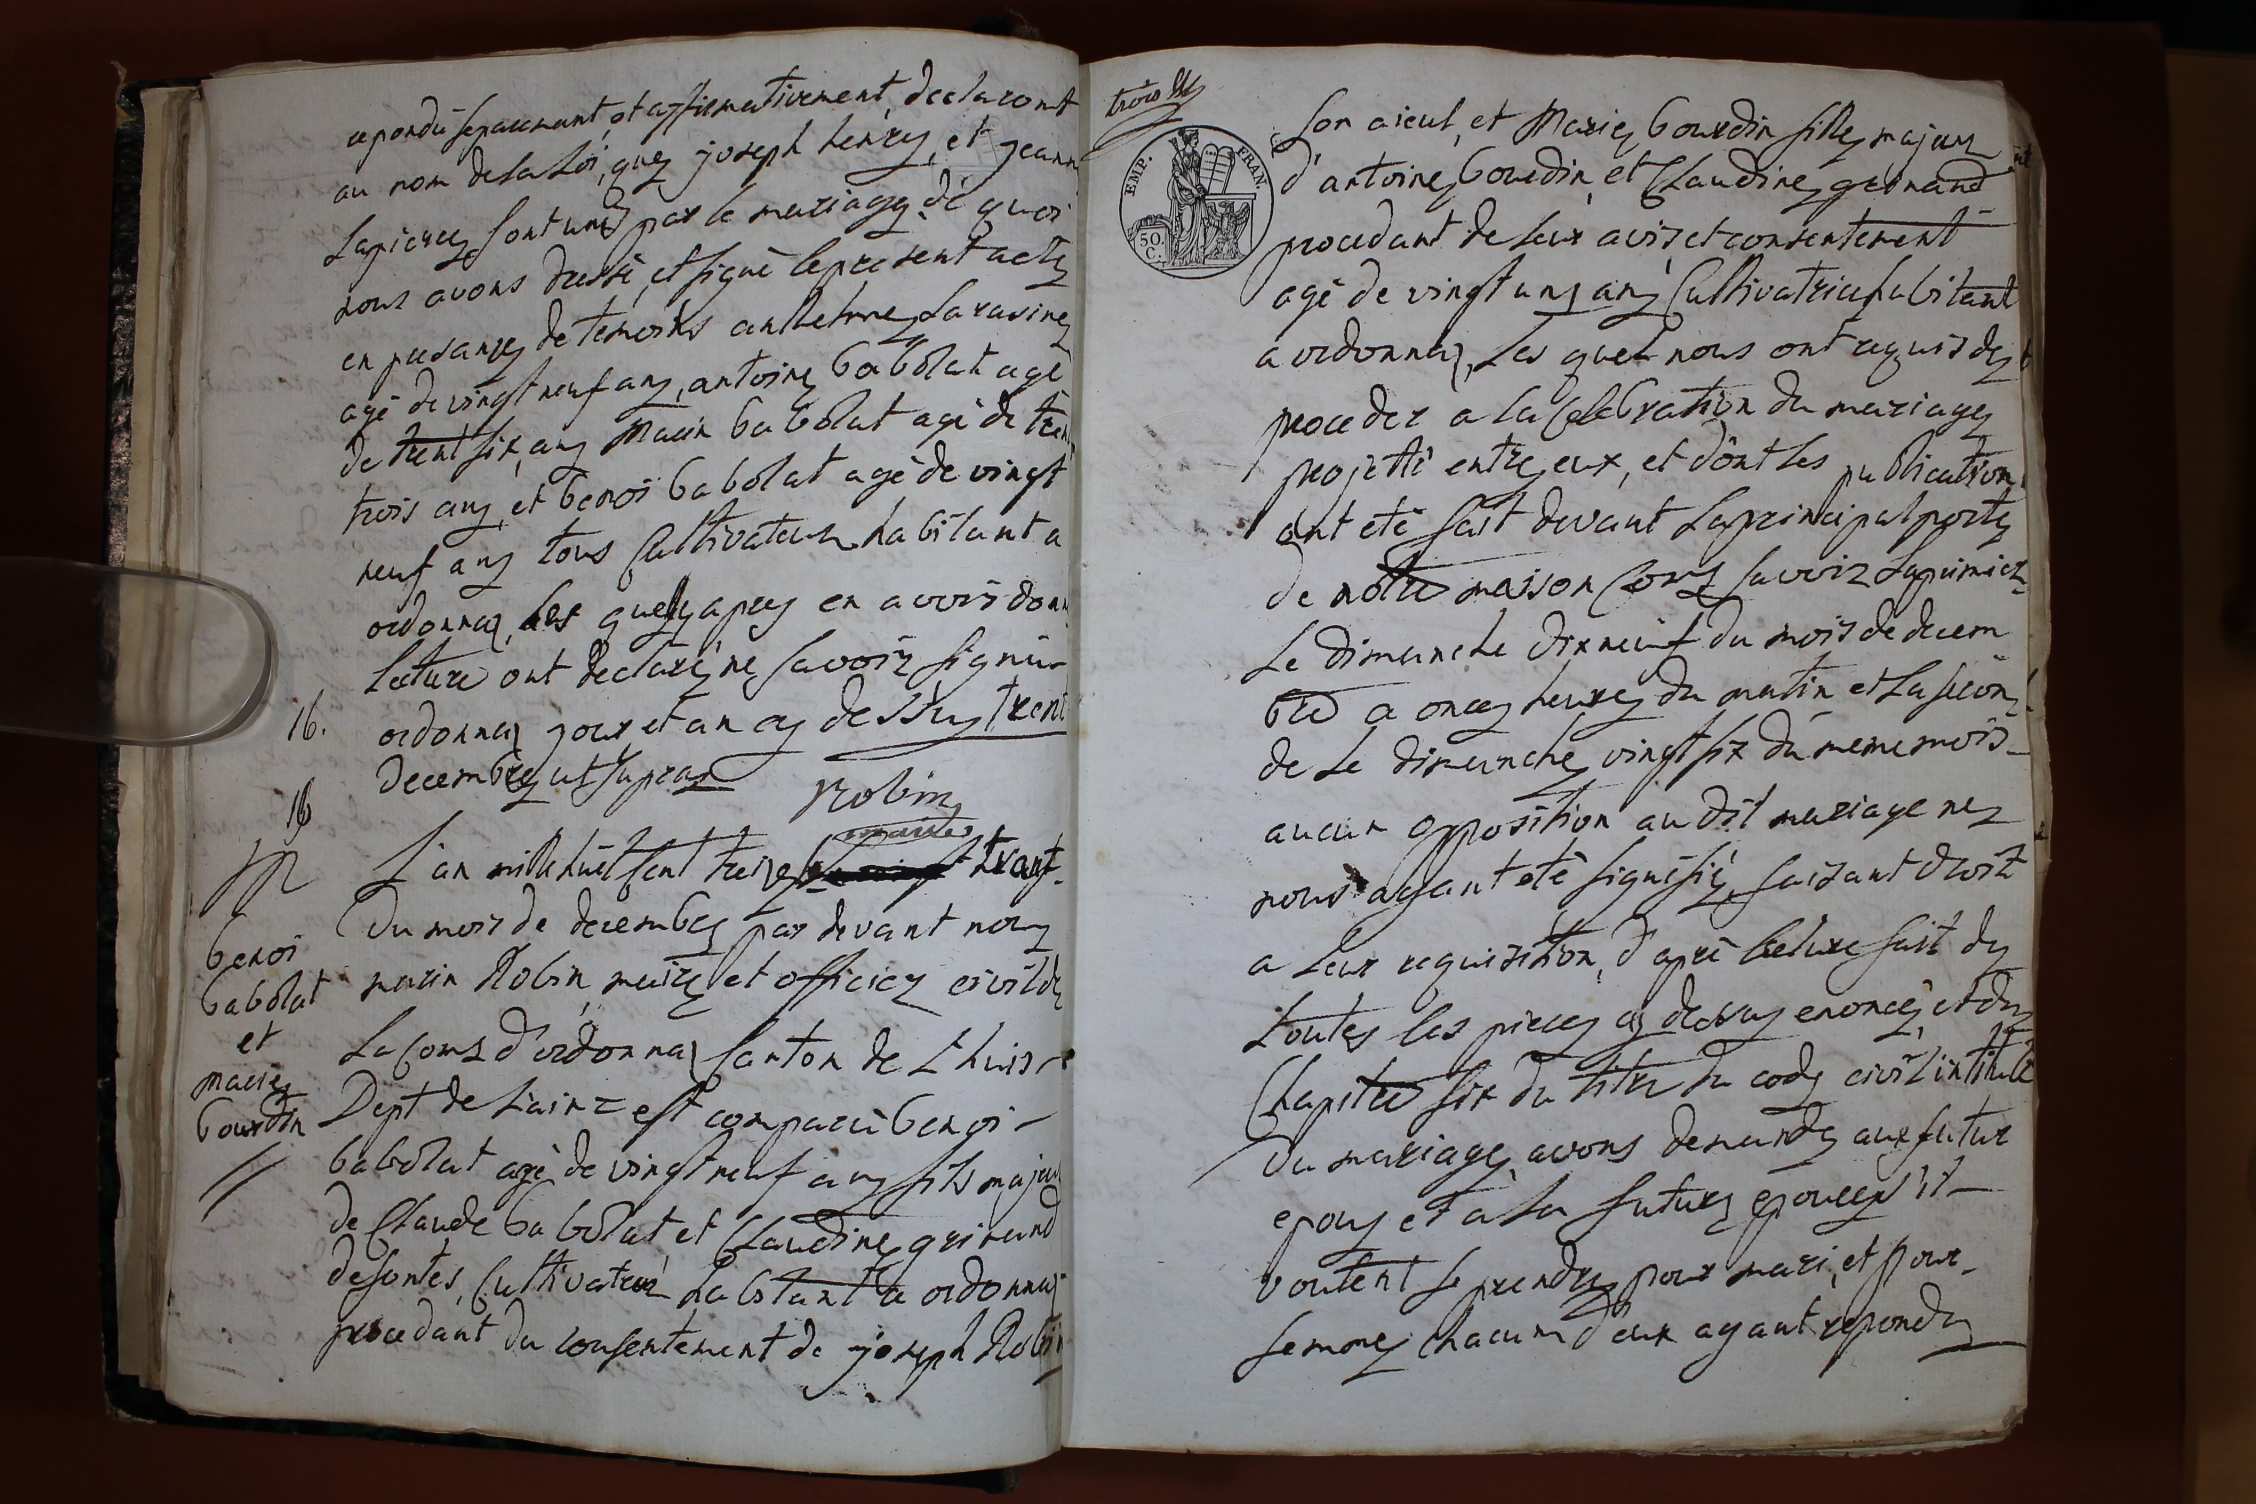 repondu separemant, et affirmativement, declaront
au nom de la Loi, que joseph henry, et jeanne
Lapierre sont unis par le mariage de quoi
nous avons dressé, et signé le present acte
en presance de temoins anthelme Sarasine
agé de vingt neuf ans, antoine babolat agé
de trent six ans Marin babolat agé de trent
trois ans, et benoi babolat agé de vingt
neuf ans tous Cultivateur habitant a
ordonnaz, les quels apres en avoir donné
lecture ont declaré ne savoir signer
16.
ordonnaz jour et an cy dessus trent
decembre ut supras
Robin
maire
16
L'an mille huit cent treize trant
Du mois de decembre par devant nous
marin Robin, maire et officier civil de
La Come d'ordonnaz Canton de Lhuis
Dept de L'ain = est comparu benoi
babolat agé de vingt neuf ans fils majeur
de Claude babolat et Claudine grinand
defuntes, Cultivateur habitant a ordonnaz
procedant du consentement de joseph Robin
benoi
babolat
et
marie
bourdin
trois
EMP. FRAN.
50.
C.
Son aieul, et Marie bourdin fille majeur
d'antoine bourdin et Claudine grinand
procedant de leur avis, et consentement
agé de vingt un ans Cultivatrice habitant
a ordonnaz, Les quel nous ont requis de
proceder a la Celebration du mariage
projetté entre eux, et dont les publication
ont eté fait devant la principal porte
de notre maison Come savoir La premier
Le dimanche dix neuf du mois de decem
bre a once heure du matin et La secon
de Le dimanche vingt six du meme mois
aucun opposition au dit mariage ne
nous ayant eté signifié, faisant droit
a leur requisition, d'apré lecture fait de
toutes les pieces cy dessus enoncé, et du
Chapitre six du titre du code civil intitulé
Du mariage, avons demande aux futur
epous et à la future epouse s'il
voulent se prendre pour mari, et pour
femme, Chacun d'eux ayant repondu